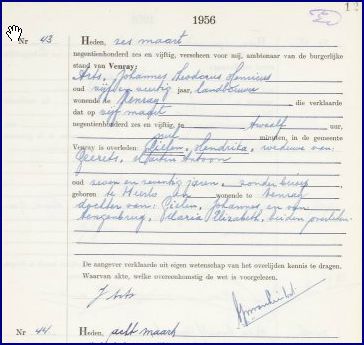 1956
Nr 43 Heden, zes maart
negentienhonderd zes en vijftig, verscheen voor mij, ambtenaar van de burgerlijke
stand van Venray:
Arts, Johannes Theodorus Henricus
oud vijf en veertig jaar, landbouwer
wonende te Venray die verklaarde
dat op vijf maart
negentienhonderd zes en vijftig, te twaalf uur,
nul minuten, in de gemeente
Venray is overleden: Cielen, Hendrika, weduwe van:
Geerets, Martin Antoon
oud zeven en zeventig jaren, zonder beroep
geboren te wonende te Venray
dochter van: Cielen, Johannes, en van
Hilaria Elizabeth, beiden overleden.
De aangever verklaarde uit eigen wetenschap van het overlijden kennis te dragen.
Waarvan akte, welke overeenkomstig de wet is voorgelezen.
J Arts
Nr 44 Heden, acht maart